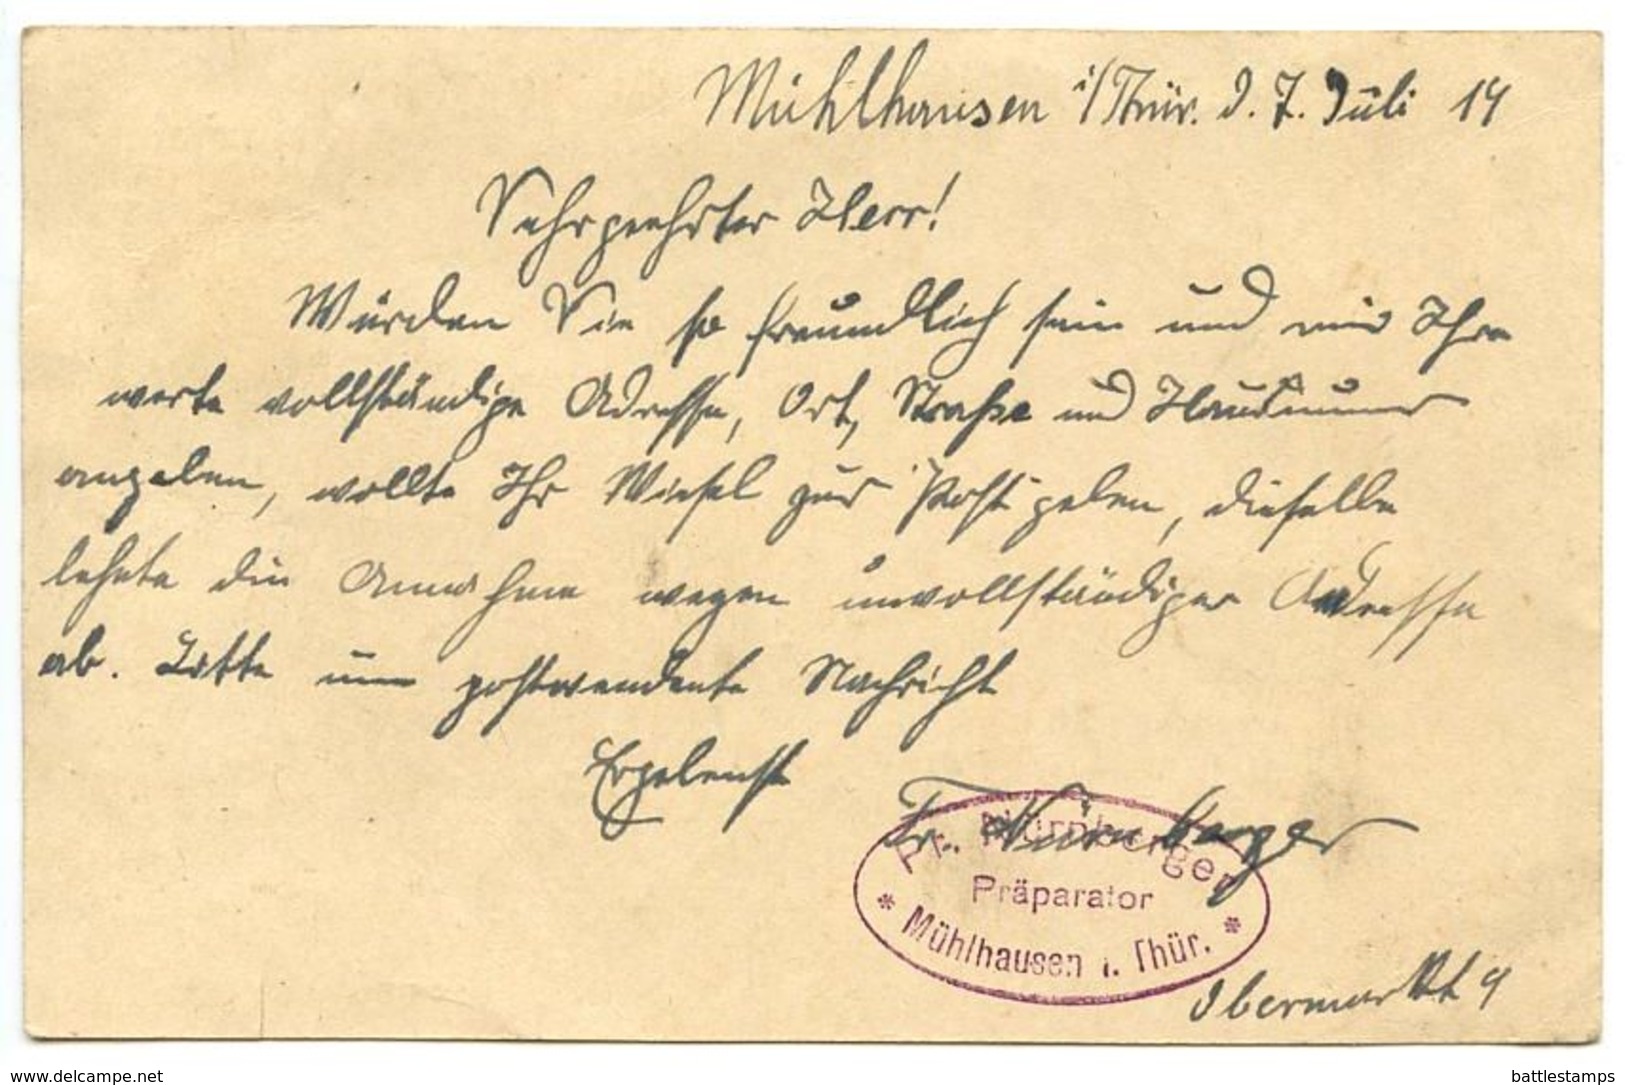 Mühlhausen i/Thür. d. 7. Juli 14
Sehrgeehrter Herr!
Würden Sie so freundlich sein und mir Ihre
werte vollständige Adresse, Ort, Straße und Hausnummer
angeben, wollte Ihr Wiesel zur Post geben, dieselbe
lehnte die Annahme wegen unvollständiger Adresse
ab. Bitte um postwendente Nachricht
Ergebenst
Fr. Nürnberger
Fr. Nürnberger
Präparator
* Mühlhausen i. Thür. *
Obermarkt 9
www.delcampe.net
battlestamps